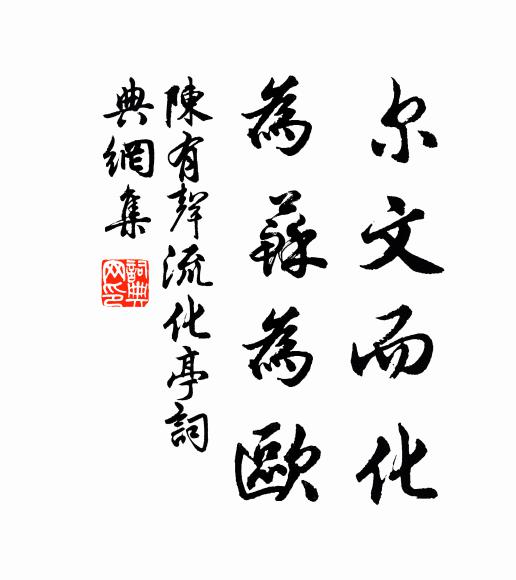 尔文而化
為蘇為歐
陳有聲流化亭詞
典網集
詞典網印